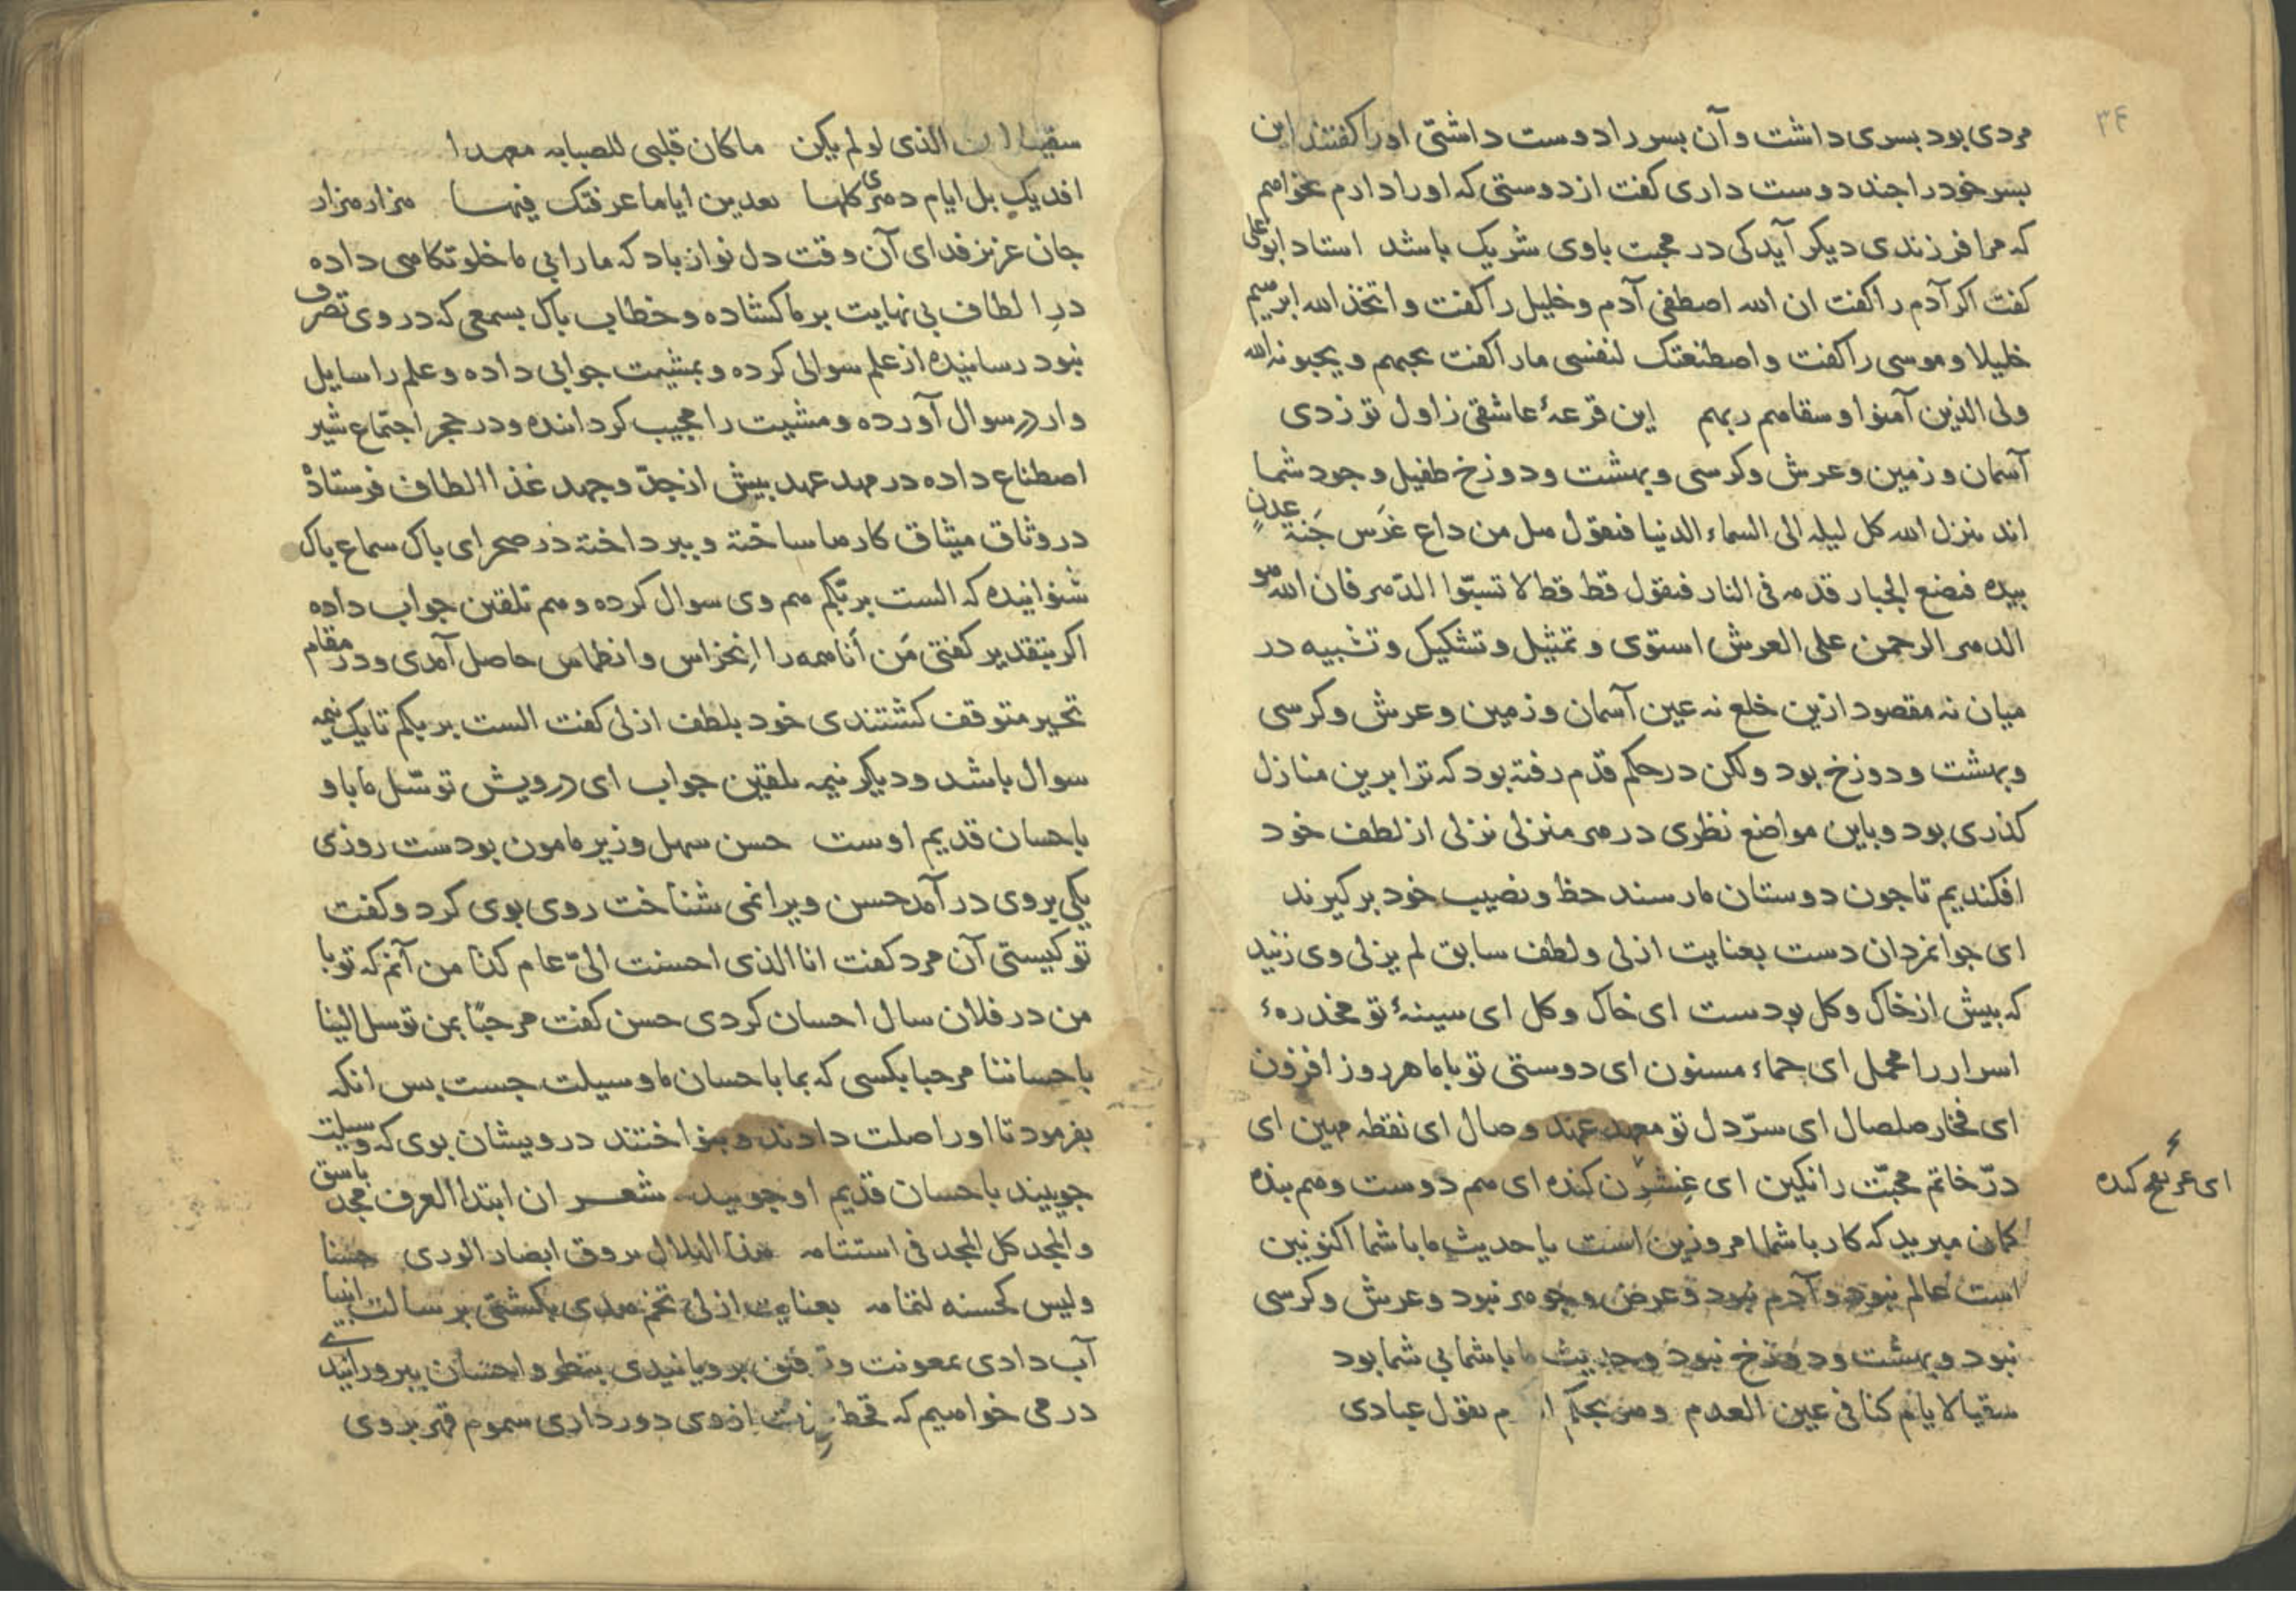 ۳۴
مردی بود بسری داشت و آن بسر را دوست داشتی او را کفتند این
بسر خود را جند دوست داری کفت از دوستی که او را دارم نخواهم
که مرا فرزندی دیکر آید کی در محبت با وی شریک باشد استاد ابو علی
کفت اکر آدم را کفت ان الله اصطفی آدم و خلیل را کفت و اتخذ الله ابرهیم
خلیلا و موسی را کفت و اصطنعتک لنفسی ما را کفت یحبهم و یحبونه الله
ولی الذین آمنوا و سقاهم ربهم این قرعهٔ عاشقی ز اول تو زدی
آسمان و زمین و عرش و کرسی و بهشت و دوزخ طفیل وجود شما
اند ینزل الله کل لیله الی السماء الدنیا فیقول هل من داع غَرَس جَنة عدنٍ
بیده فیضع الجبار قدمه فی النار فیقول قط قط لا تسبّوا الدّهر فان الله هو
الدهر الرحمن علی العرش استوی و تمثیل و تشکیل و تشبیه در
میان نه مقصود ازین خلع نه عین آسمان و زمین و عرش و کرسی
و بهشت و دوزخ بود ولکن در حکم قدم رفته بود که ترا برین منازل
کذری بود و باین مواضع نظری در هر منزلی نزلی از لطف خود
افکندیم تا جون دوستان ما رسند حظ و نصیب خود بر کیرند
ای جوانمردان دست بعنایت ازلی و لطف سابق لم یزلی وی زنید
که بیش از خاک و کل بودست ای خاک و کل ای سینهٔ تو مخدرهٔ
اسرار را محمل ای حماء مسنون ای دوستی تو با ما هر روز افزون
ای فخار صلصال ای سرّ دل تو معهد عهد و وصال ای نقطه مهین ای
درّ خاتم محبّت را نکین ای کنده ای هم دوست و هم بنده
ای کنده
کمان مبرید که کار با شما امروزین است یا حدیث ما با شما اکنونین
است عالم نبود و آدم نبود و عرض و جوهر نبود و عرش و کرسی
نبود و بهشت و دوزخ نبود و حدیث ما با شما بی شما بود
سقیا لایام کنا فی عین العدم و هو یقول عبادی
سقیا الذی لو لم یکن ما کان قلبی للصبابه معهدا
افدیک بل ایام دهری کلها یفدین ایاما عرفتک فیها هزار هزار
جان عزیز فدای آن وقت دل نواز باد که ما را بی ما خلوتکاهی داده
درِ الطاف بی نهایت بر ما کشاده و خطاب باک بسمعی که در وی تصرف
نبود رسانیده از علم سوالی کرده و بمشیت جوابی داده و علم را سایل
وار در سوال آورده و مشیت را مجیب کردانده و در حجر اجتماع شیر
اصطناع داده در مهد عهد بیش از جدّ و جهد غذا الطاف فرستاده
در وثاق میثاق کار ما ساخته و ببرداخته در صحرای باک سماع باک
شنوانیده که الست بربّکم هم وی سوال کرده و هم تلقین جواب داده
اکر بتقدیر کفتی مَن اَنا همه را اِنخراس و انطماس حاصل آمدی و در مقام
تحیر متوقف کشتندی خود بلطف ازلی کفت الست بربکم تا یک نیمه
سوال باشد و دیکر نیمه تلقین جواب ای درویش توسّل ما با و
باحسان قدیم اوست حسن سهل وزیر مامون بودست روزی
یکی بر وی در آمد حسن ویرا نمی شناخت روی بوی کرد و کفت
تو کیستی آن مرد کفت انا الذی احسنت الیّ عام کذا من آنم که تو با
من در فلان سال احسان کردی حسن کفت مرحبًا بمن توسل الینا
باحساننا مرحبا بکسی که بما باحسان ما وسیلت جست بس انکه
بفرمود تا او را صلت دادند و بنواختند درویشان بوی که وسیلت
جویند باحسان قدیم او جویید شعر ان ابتدا العرف مجد باسق
و المجد کل المجد فی استتمامه هذا الهلال یروق ابصار الوری حسنا
و لیس کحسنه لتمامه بعنایت ازلی تخم هدی بکشتی برسالت انبیا
آب دادی بمعونت و توفیق برویانیدی بنظر و احسان ببرورانیدی
در می خواهیم که قحط از وی دور داری سموم قهر بر وی